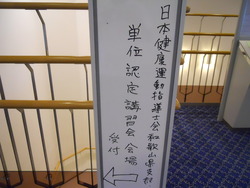 日本健康運動指導士会和歌山県支部
単位認定講習会会場
受付